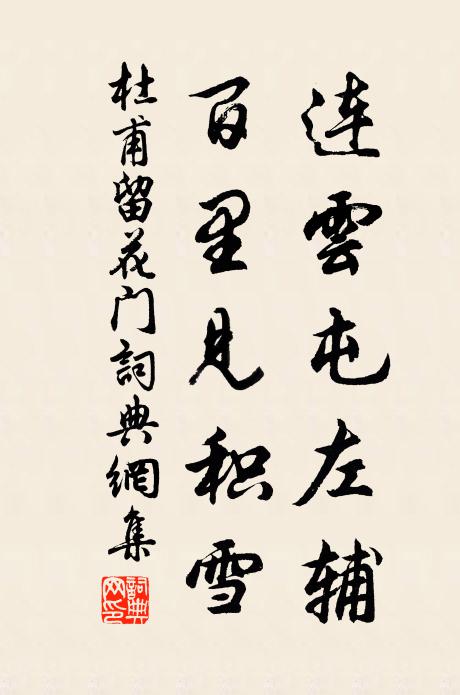 連雲屯左辅
百里見积雪
杜甫留花门詞典網集
詞典网印